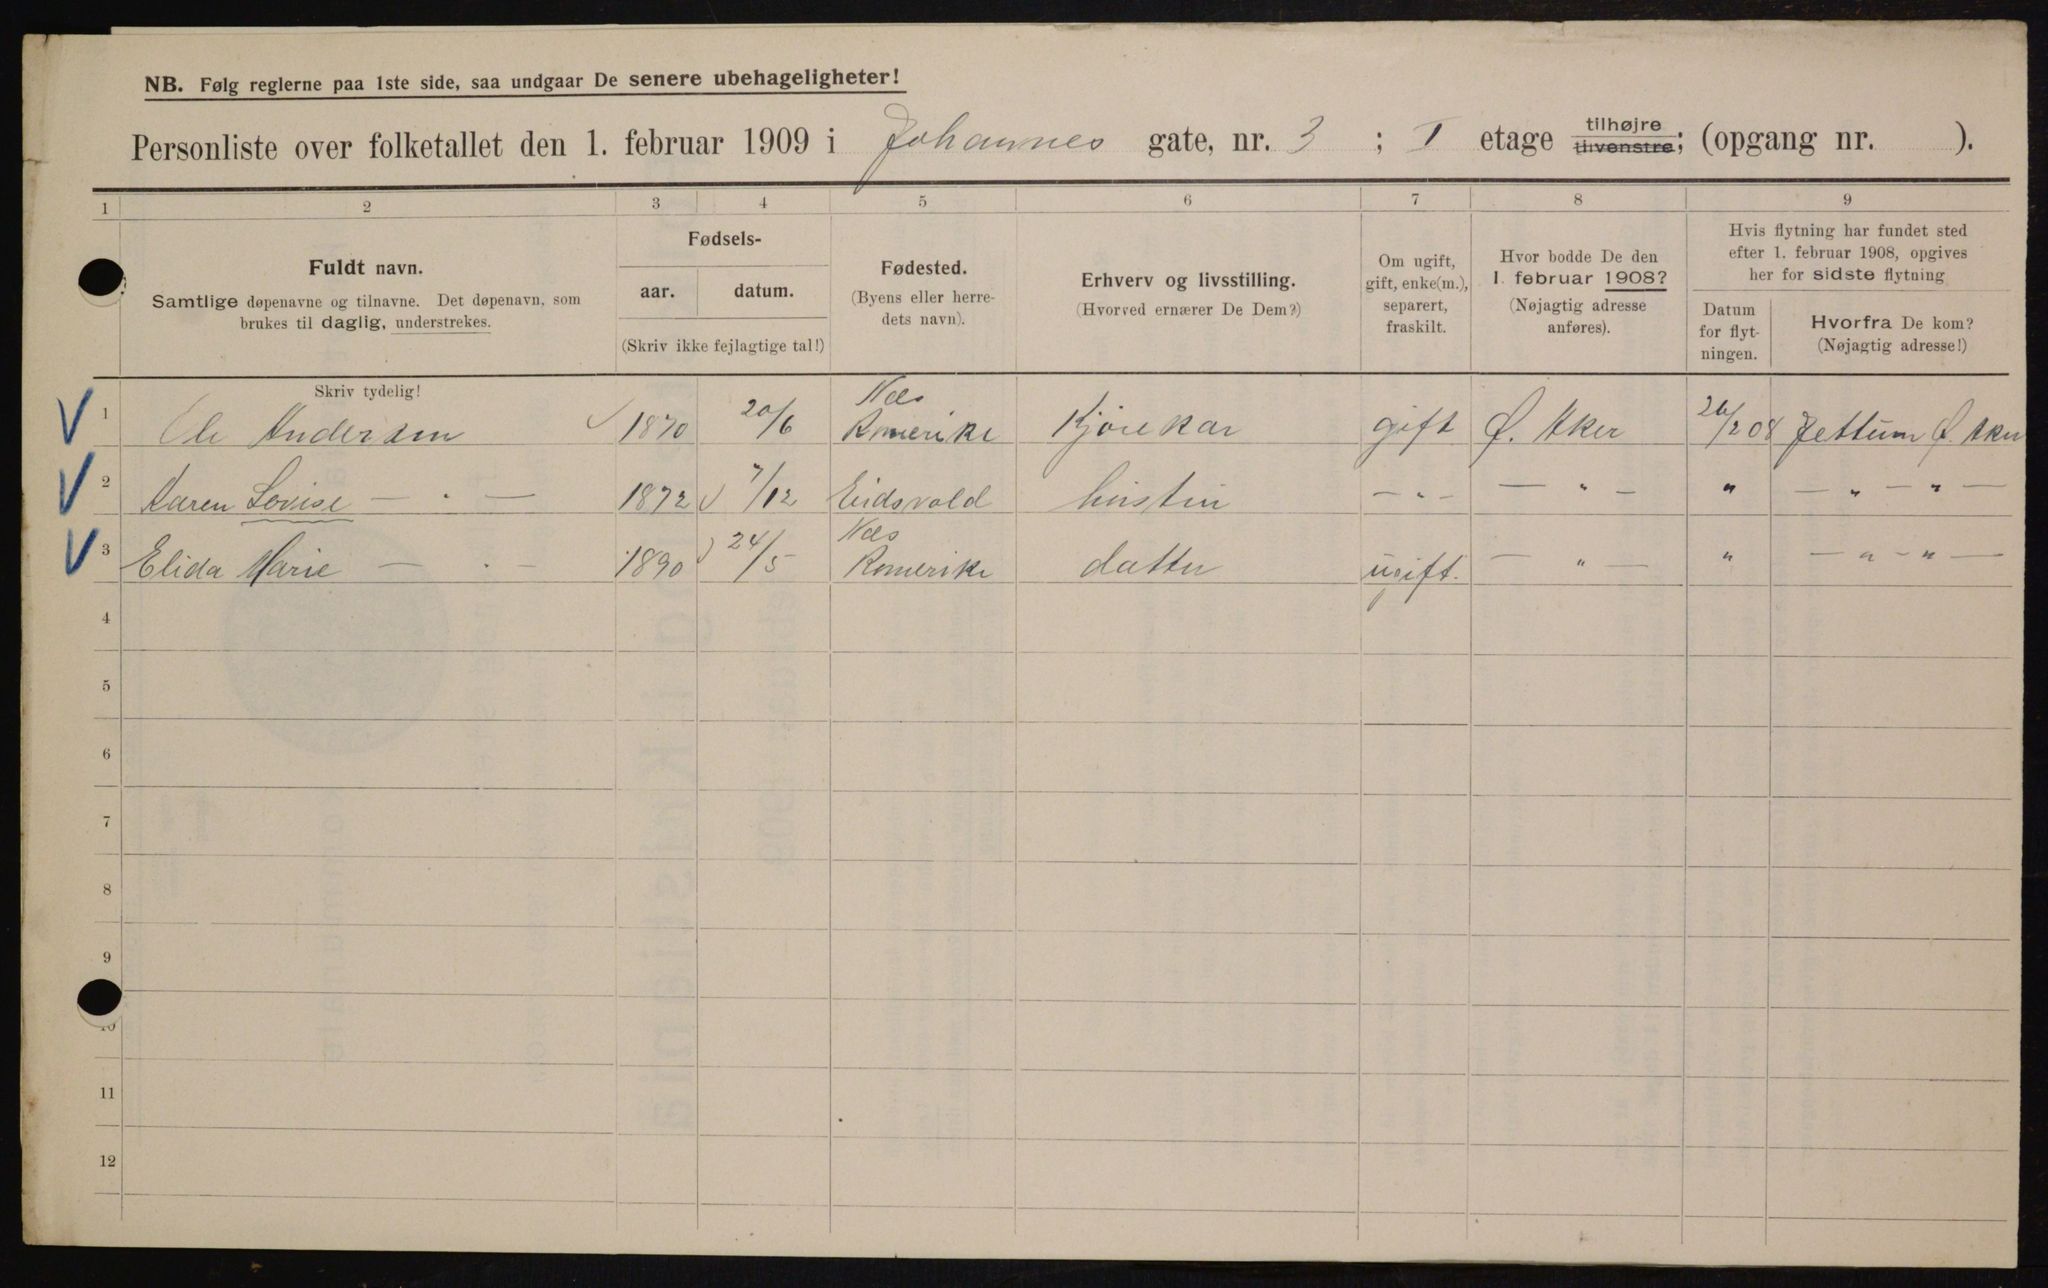 NB. Følg reglerne paa 1ste side, saa undgaar De senere ubehageligheter!
Personliste over folketallet den 1. februar 1909 i Johannes gate, nr. 3 ; I etage tilhøjre tilvenstre; (opgang nr. ).
1 2 3 4 5 6 7 8 9
Fuldt navn.
Samtlige døpenavne og tilnavne. Det døpenavn, som
brukes til daglig, understrekes.
Skriv tydelig!
Fødsels-
aar. datum.
(Skriv ikke fejlagtige tal!)
Fødested.
(Byens eller herre-
dets navn).
Erhverv og livsstilling.
(Hvorved ernærer De Dem?)
Om ugift,
gift, enke(m.),
separert,
fraskilt.
Hvor bodde De den
1. februar 1908?
(Nøjagtig adresse
anføres).
Hvis flytning har fundet sted
efter 1. februar 1908, opgives
her for sidste flytning
Datum
for flyt-
ningen.
Hvorfra De kom?
(Nøjagtig adresse!)
V 1 Ole Andersen 1870 20/6 Næs Romerike Kjørekar gift Ø. Aker 26/2 08 Jettum Ø. Aker
V 2 Karen Lovise — " — 1872 7/12 Eidsvold hustru — " — — " — " — " — " —
V 3 Elida Marie — " — 1890 24/5 Næs Romerike datter ugift. — " — " — " — " —
4
5
6
7
8
9
10
11
12